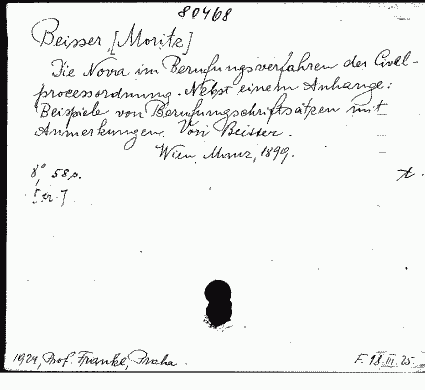 80468
Beisser, [Moritz]
Die Nova im Berufungsverfahren der Civil-
processordnung. Nebst einem Anhange:
Beispiele von Berufungsschriftsätzen mit
Anmerkungen. Von Beisser.
Wien, Manz, 1899.
8°, 58 p.
1924, Prof. Frankl, Praha.
F. 18.III.25.